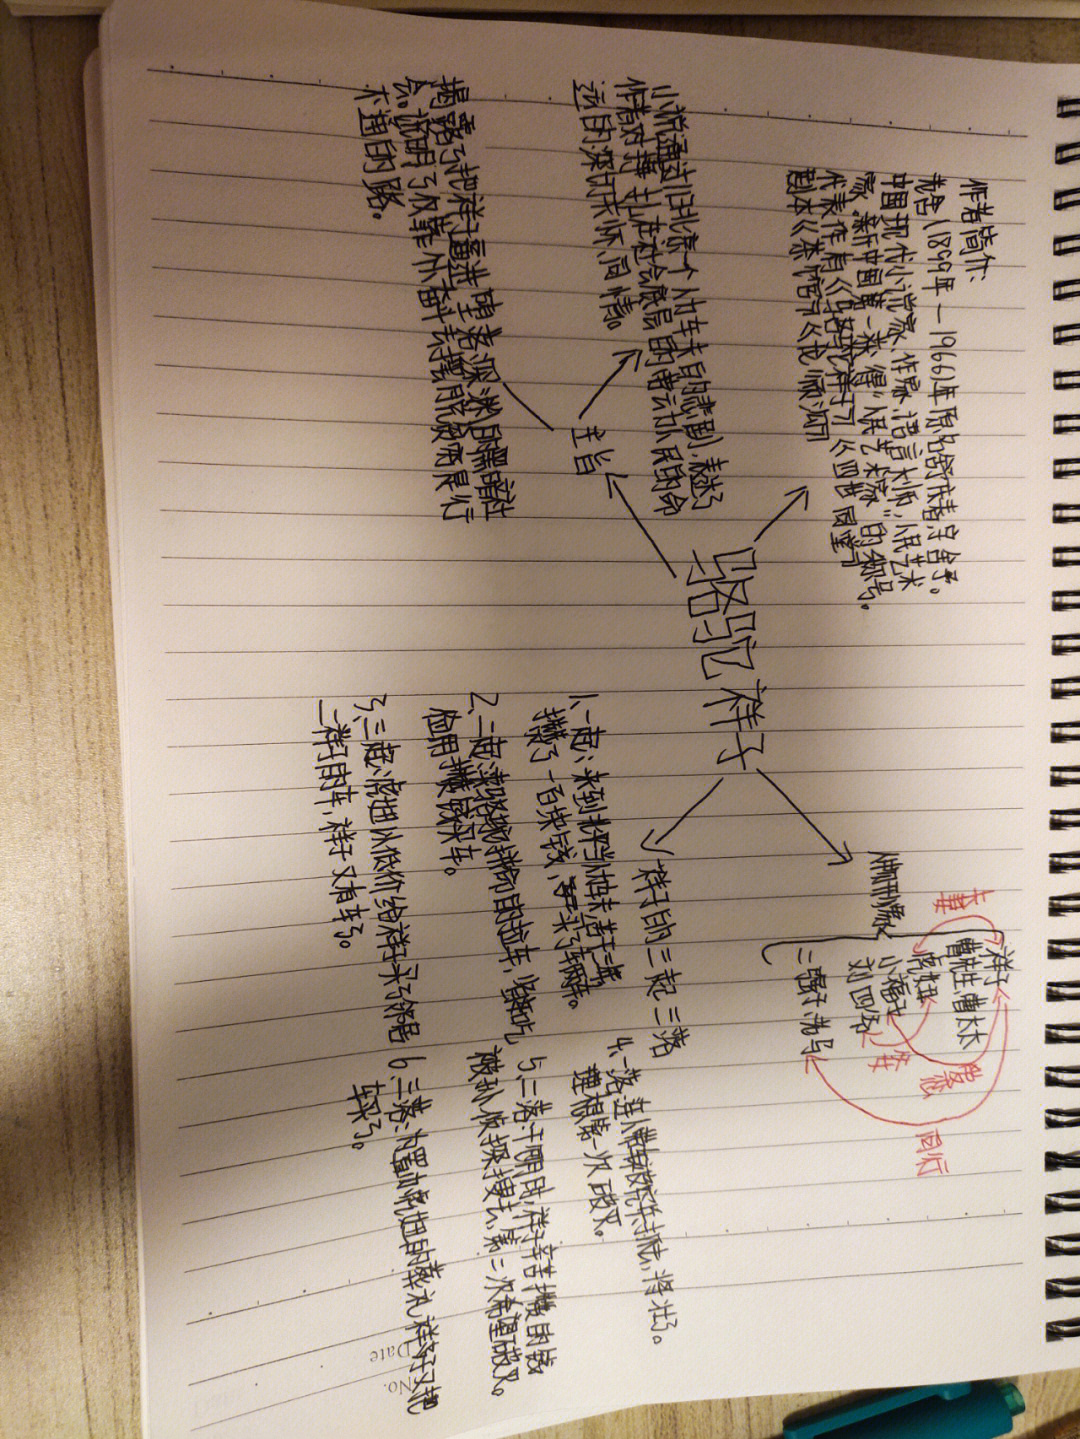 作者简介:
老舍(1899年—1966)年原名舒庆春字舍予。
中国现代小说家、作家、语言大师、人民艺术
家、新中国第一获得“人民艺术家”的称号。
代表作有《骆驼祥子》《四世同堂》
剧本《茶馆》《龙须沟》
小说通过旧北京个人力车夫的悲剧,表达了
作者对挣扎在社会底层的劳动人民的命
运的深切关怀、同情。
主旨
揭露了把祥子逼进堕落深渊的黑暗社
会。说明了仅靠个人奋斗去摆脱贫穷是行
不通的路。
骆驼祥子
人物形象
祥子
曹先生、曹太太
虎妞
小福子
刘四爷
二强子、老马
夫妻
父女
同行
祥子的三起三落
1、一起:来到北平当人力车夫,苦干三年
攒了一百块钱,买了辆车。
2、二起:卖骆驼,拼命的拉车,省吃
俭用攒钱买车。
3、三起:虎妞以低价给祥子买了邻居
二强子的车,祥子又有车了。
4、一落:连人带车被
理想第一次破灭。
5、二落:干明白,祥子辛苦攒的钱
被孙侦探搜去,第二次希望破灭。
6、三落:为置办虎妞的葬礼祥子又把
车买了。
Date
No.